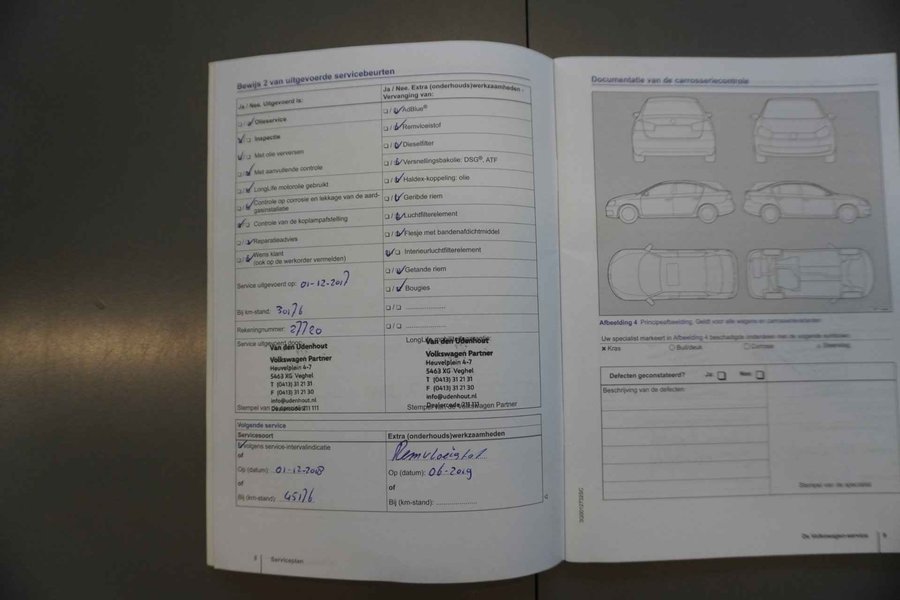 Bewijs 2 van uitgevoerde servicebeurten
Ja / Nee. Uitgevoerd is:
Olieservice
Inspectie
Met olie verversen
Met aanvullende controle
LongLife motorolie gebruikt
Controle op corrosie en lekkage van de aard-
gasinstallatie
Controle van de koplampafstelling
Reparatieadvies
Wens klant
(ook op de werkorder vermelden)
Service uitgevoerd op: 01-12-2017
Bij km-stand: 30176
Rekeningnummer: 27720
Service uitgevoerd door:
Van den Udenhout
Volkswagen Partner
Heuvelplein 4-7
5463 XG Veghel
T (0413) 31 21 31
F (0413) 31 21 30
info@udenhout.nl
Dealercode 211 111
Stempel van
Ja / Nee. Extra (onderhouds)werkzaamheden -
Vervanging van:
AdBlue®
Remvloeistof
Dieselfilter
Versnellingsbakolie: DSG®, ATF
Haldex-koppeling: olie
Geribde riem
Luchtfilterelement
Flesje met bandenafdichtmiddel
Interieurluchtfilterelement
Getande riem
Bougies
Van den Udenhout
Volkswagen Partner
Heuvelplein 4-7
5463 XG Veghel
T (0413) 31 21 31
F (0413) 31 21 30
info@udenhout.nl
Dealercode 211 111
Stempel van de Volkswagen Partner
Volgende service
Servicesoort
Volgens service-intervalindicatie
of
Op (datum): 01-12-2018
of
Bij (km-stand): 45176
Extra (onderhouds)werkzaamheden
Remvloeistof
Op (datum): 06-2019
of
Bij (km-stand):
8 Serviceplan
Documentatie van de carrosseriecontrole
Afbeelding 4 Principeafbeelding. Geldt voor alle wagens en carrosserievarianten.
Uw specialist markeert in Afbeelding 4 beschadigde onderdelen met de volgende symbolen:
x Kras
Buil/deuk
Corrosie
Steenslag
Defecten geconstateerd? Ja: Nee:
Beschrijving van de defecten:
Stempel van de specialist
De Volkswagen-service 9